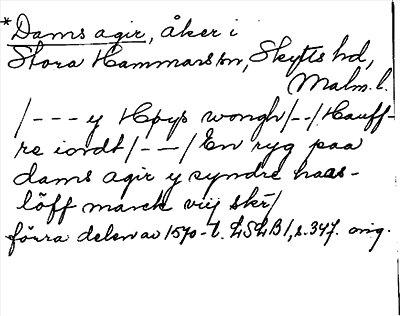 *Dams agir, åker i
Stora Hammars sn, Skytts hd,
Malm. l.
/--- y Høys wongh/--/Hauff-
re iordt/--/En ryg paa
dams agir y syndre haas-
löff marck viij skr/
förra delen av 1570-t. LSLB 1, s. 347. orig.